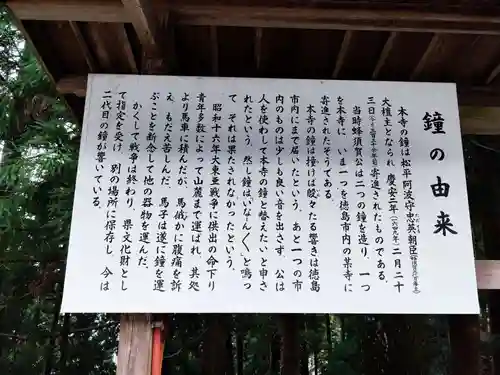 鐘の由来
本寺の鐘は松平阿波守忠英朝臣
大檀主となられ、慶安二年（一六四九年）二月二十
三日 寄進されたものである。
当時蜂須賀公は二つの鐘を造り、一つ
を本寺に、いま一つを徳島市内の某寺に
寄進されたそうである。
本寺の鐘は撞けば殷々たる響きは徳島
市内にまで届いたという。あと一つの市
内のものは少しも良い音を出さず、公は
人を使わって本寺の鐘と替えたいと申さ
れたという。然し鐘は「いなーんく」と鳴っ
て、それは果たされなかったという。
昭和十六年大東亜戦争に供出の命下り
青年多数によって山麓まで運ばれ、其処
より馬車に積んだが、馬俄かに腹痛を訴
え、もだえ苦しんだ。馬子は遂に鐘を運
ぶことを断念して他の器物を運んだ。
かくして戦争は終わり、県文化財とし
て指定を受け、別の場所に保存し、今は
二代目の鐘が響いている。